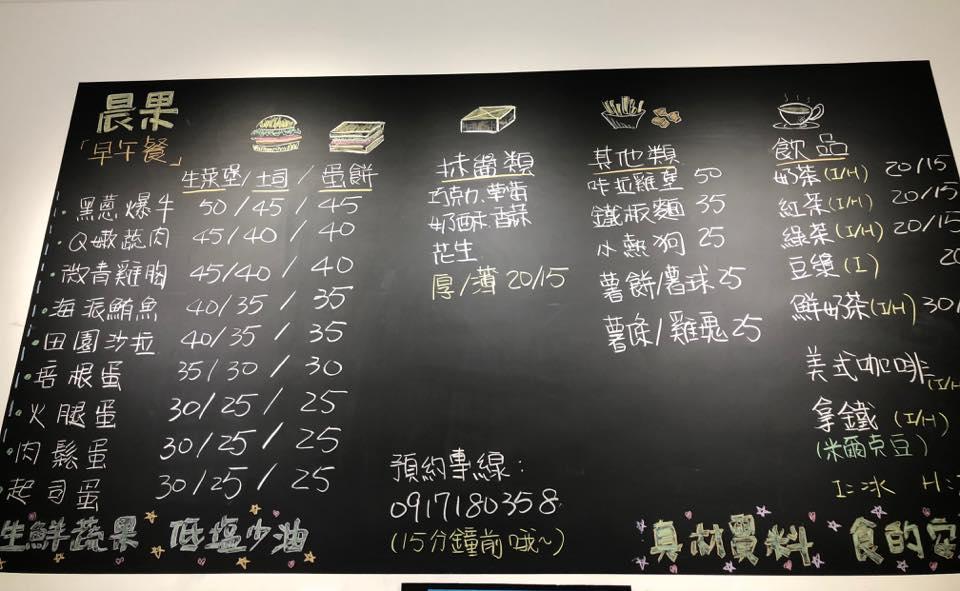 晨果
「早午餐」
生菜堡/土司/蛋餅
·黑蔥爆牛 50/45/45
·Q嫩蔬肉 45/40/40
·微青雞胸 45/40/40
·海派鮪魚 40/35/35
·田園沙拉 40/35/35
·培根蛋 35/30/30
·火腿蛋 30/25/25
·肉鬆蛋 30/25/25
·起司蛋 30/25/25
抹醬類
巧克力.草莓
奶酥.香酥
花生
厚/薄 20/15
其他類
咔拉雞堡 50
鐵板麵 35
小熱狗 25
薯餅/薯球 25
薯條/雞塊 25
飲品
奶茶(I/H) 20/15
紅茶(I/H) 20/15
綠茶(I/H) 20/15
豆漿(I) 20
鮮奶茶(I/H) 30/
美式咖啡
(I/H
拿鐵(I/H)
(米爾克豆)
I=冰 H=
預約專線:
0917180358
(15分鐘前哦~)
生鮮蔬果 低塩少油
真材實料 食的安